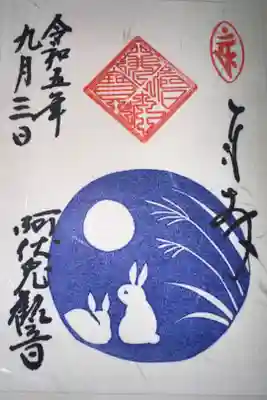 奉拝
令和五年
九月三日
阿伏兎観音